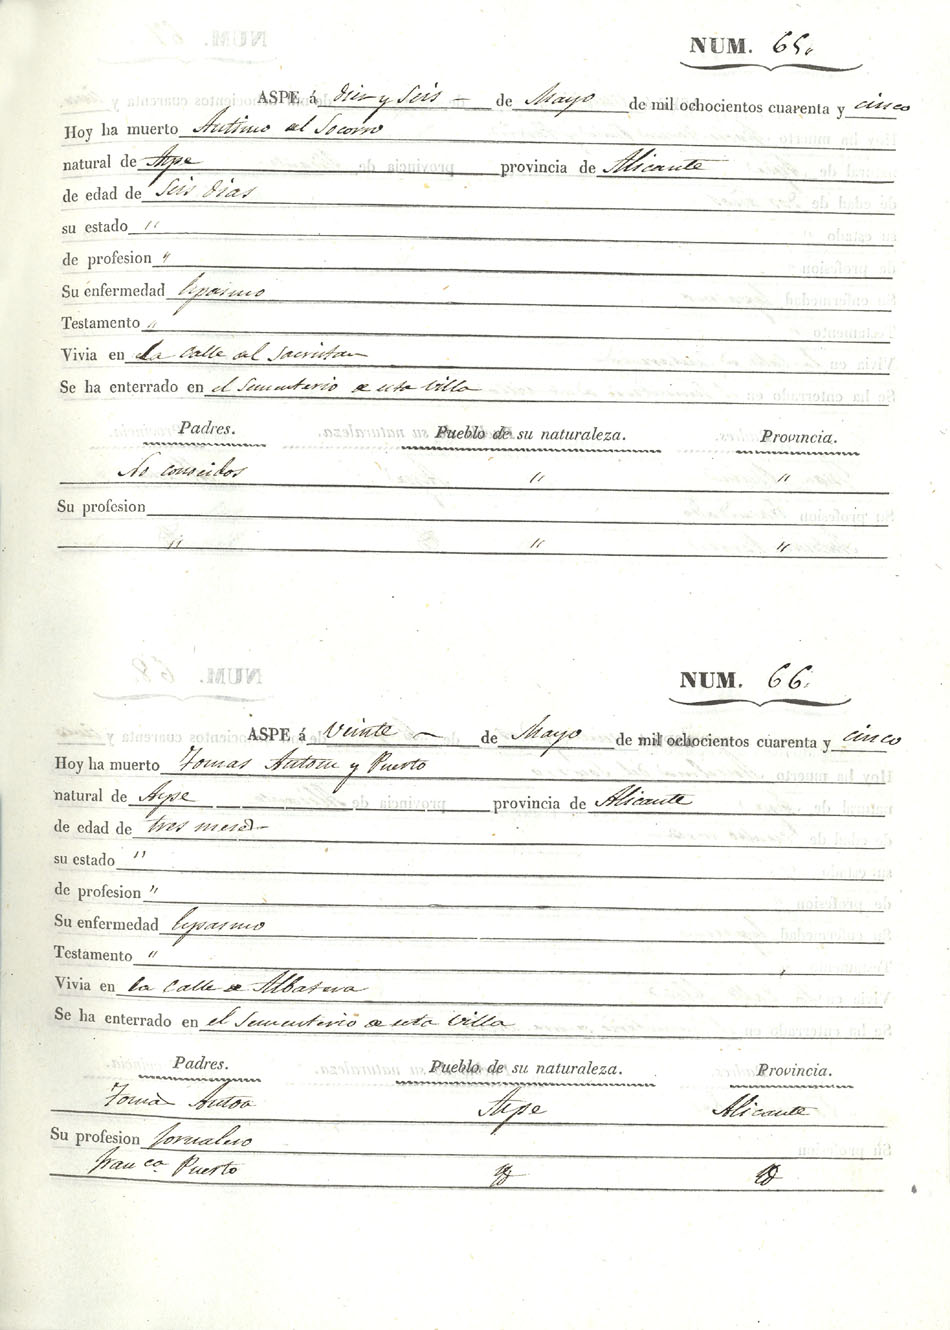 NUM. 65.
ASPE á diez y seis de Mayo de mil ochocientos cuarenta y cinco
Hoy ha muerto Antimo del Socorro
natural de Aspe provincia de Alicante
de edad de seis dias
su estado "
de profesion "
Su enfermedad espasmo
Testamento "
Vivia en la calle del sacristan
Se ha enterrado en el sementerio de esta villa
Padres. Pueblo de su naturaleza. Provincia.
No conocidos " "
Su profesion
" " "
NUM. 66.
ASPE á veinte de Mayo de mil ochocientos cuarenta y cinco
Hoy ha muerto Tomas Anton y Puerto
natural de Aspe provincia de Alicante
de edad de tres meses
su estado "
de profesion "
Su enfermedad espasmo
Testamento "
Vivia en la calle de Albatera
Se ha enterrado en el sementerio de esta villa
Padres. Pueblo de su naturaleza. Provincia.
Tomas Anton Aspe Alicante
Su profesion jornalero
Franca Puerto Yd Yd